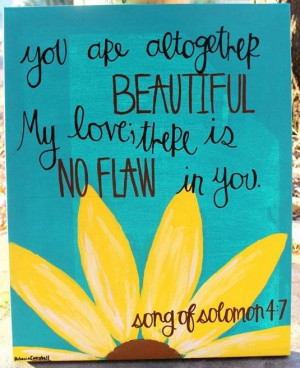 you are altogether
BEAUTIFUL
My love; there is
NO FLAW in you.
song of solomon 4:7